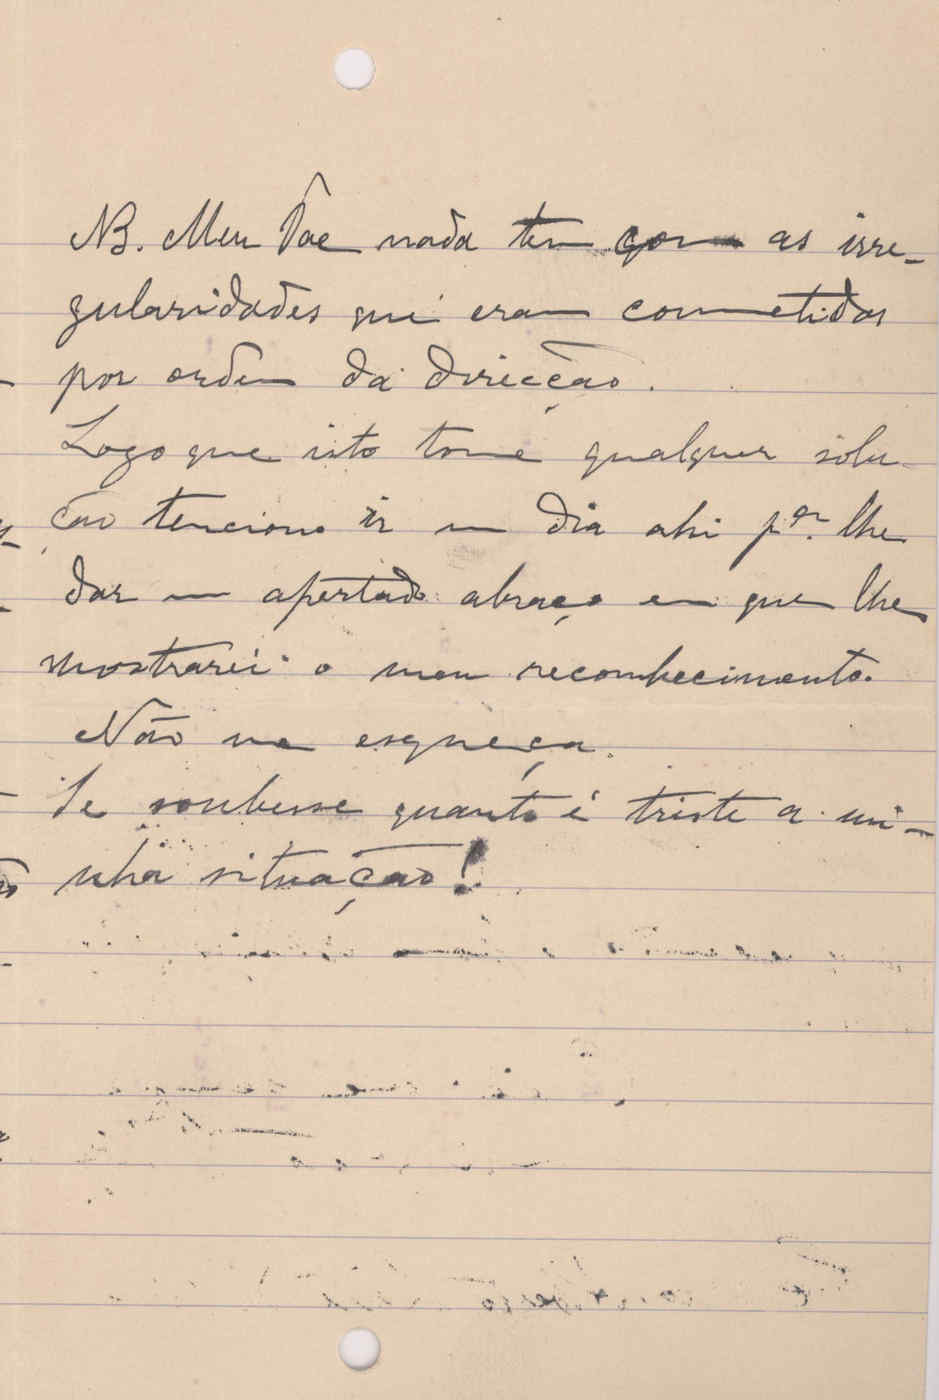 NB. Meu Pae nada tem com as irre-
gularidades que eram commetidas
por ordem da direcção.
Logo que isto tome qualquer solu-
ção tenciono ir um dia ahi pª. lhe
dar um apertado abraço em que lhe
mostrarei o meu reconhecimento.
Não me esqueça.
Se soubesse quanto é triste a mi-
nha situação!